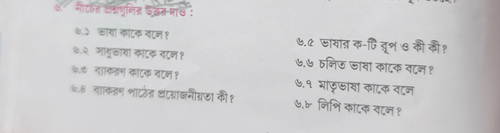 ৬. নীচের প্রশ্নগুলির উত্তর দাও :
৬.১ ভাষা কাকে বলে?
৬.২ সাধুভাষা কাকে বলে?
৬.৩ ব্যাকরণ কাকে বলে?
৬.৪ ব্যাকরণ পাঠের প্রয়োজনীয়তা কী?
৬.৫ ভাষার ক-টি রূপ ও কী কী?
৬.৬ চলিত ভাষা কাকে বলে?
৬.৭ মাতৃভাষা কাকে বলে
৬.৮ লিপি কাকে বলে?